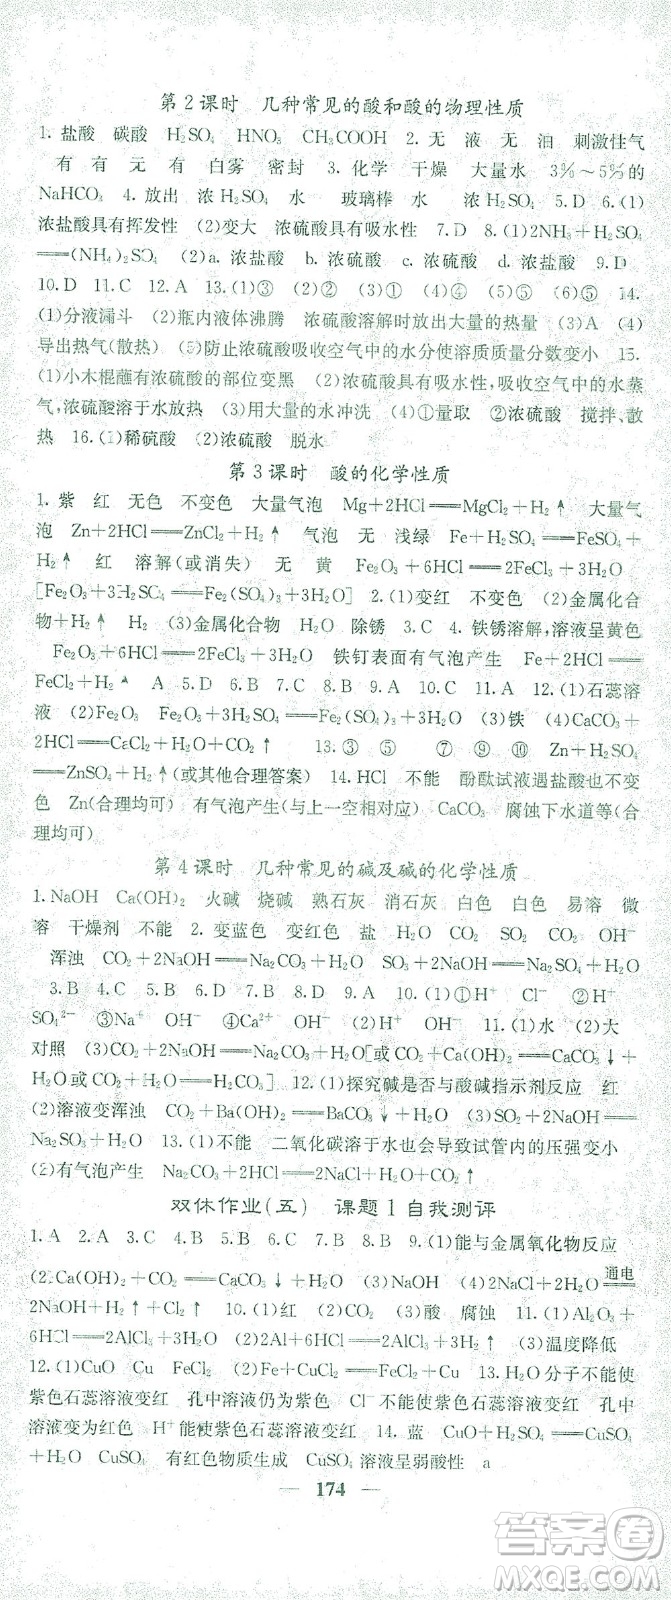 第2课时　几种常见的酸和酸的物理性质
1. 盐酸　碳酸　H₂SO₄　HNO₃　CH₃COOH　2. 无　液　无　油　刺激性气
有　有　无　有　白雾　密封　3. 化学　干燥　大量水　3%～5%的
NaHCO₃　4. 放出　浓 H₂SO₄　水　玻璃棒　水　浓 H₂SO₄　5. D　6. (1)
浓盐酸具有挥发性　(2)变大　浓硫酸具有吸水性　7. D　8. (1)2NH₃+H₂SO₄
══(NH₄)₂SO₄　(2)a. 浓盐酸　b. 浓硫酸　c. 浓硫酸　d. 浓盐酸　9. D
10. D　11. C　12. A　13. (1)③　(2)①　(3)②　(4)④　(5)⑤　(6)⑥　14.
(1)分液漏斗　(2)瓶内液体沸腾　浓硫酸溶解时放出大量的热量　(4)
导出热气(散热)　(5)防止浓硫酸吸收空气中的水分使溶质质量分数变小　15.
(1)小木棍蘸有浓硫酸的部位变黑　(2)浓硫酸具有吸水性,吸收空气中的水蒸
气,浓硫酸溶于水放热　(3)用大量的水冲洗　(4)①量取　②浓硫酸　搅拌、散
热　16. (1)稀硫酸　(2)浓硫酸　脱水
第3课时　酸的化学性质
1. 紫　红　无色　不变色　大量气泡　Mg+2HCl══MgCl₂+H₂↑　大量气
泡　Zn+2HCl══ZnCl₂+H₂↑　气泡　无　浅绿　Fe+H₂SO₄══FeSO₄
+H₂↑　红　溶解(或消失)　无　黄　Fe₂O₃+6HCl══2FeCl₃+3H₂O
[Fe₂O₃+3H₂SO₄══Fe₂(SO₄)₃+3H₂O]　2. (1)变红　不变色　(2)金属化合
物+H₂↑　H₂　(3)金属化合物　H₂O　除锈　3. C　4. 铁锈溶解,溶液呈黄色
Fe₂O₃+6HCl══2FeCl₃+3H₂O　铁钉表面有气泡产生　Fe+2HCl══
FeCl₂+H₂↑　A　5. D　6. B　7. B　8. D　9. C　10. A　11. A　12. (1)石蕊溶
液　(2)Fe₂O₃　Fe₂O₃+3H₂SO₄══Fe₂(SO₄)₃+3H₂O　(3)铁　(4)CaCO₃
+2HCl══CaCl₂+H₂O+CO₂↑　13. ③　⑤　⑦　⑨　⑩　Zn+H₂SO₄══
ZnSO₄+H₂↑(或其他合理答案)　14. HCl　不能　酚酞试液遇盐酸不变
色　Zn(合理均可)　有气泡产生(与上一空相对应)　CaCO₃　腐蚀下水道等(合
理均可)
第4课时　几种常见的碱及碱的化学性质
1. NaOH　Ca(OH)₂　火碱　烧碱　熟石灰　消石灰　白色　白色　易溶　微
溶　干燥剂　不能　2. 变蓝色　变红色　盐　H₂O　CO₂　SO₂　CO₂　OH⁻
浑浊　CO₂+2NaOH══Na₂CO₃+H₂O　SO₃+2NaOH══Na₂SO₄+H₂O
3. B　4. D　5. A　6. D　7. B　8. A　9. B　10. (1)①H⁺　Cl⁻　②H⁺
SO₄²⁻　③Na⁺　OH⁻　④Ca²⁺　OH⁻　(2)H⁺　OH⁻　11. (1)水　(2)大
对照　(3)CO₂+2NaOH══Na₂CO₃+H₂O[或CO₂+Ca(OH)₂══
CaCO₃↓+H₂O]　12. (1)探究碱是否与酸碱指示剂反应　红
(2)溶液变浑浊　CO₂+Ba(OH)₂══BaCO₃↓+H₂O　(3)NaOH
Na₂CO₃　CO₂　13. (1)不能　二氧化碳溶于水也会导致试管内的压强变小
(2)有气泡产生　Na₂CO₃+2HCl══2NaCl+H₂O+CO₂↑
双休作业(五)　课题1自我测评
1. A　2. A　3. C　4. C　5. B　6. B　7. D　8. B　9. (1)能与金属氧化物反应
(2)Ca(OH)₂+CO₂══CaCO₃↓+H₂O　(3)NaOH　(4)2NaCl+2H₂O 通电══
2NaOH+H₂↑+Cl₂↑　10. (1)红　(2)B　(3)酸　腐蚀　11. (1)Al₂O₃+
6HCl══2AlCl₃+3H₂O　(2)2Al+6HCl══2AlCl₃+3H₂↑　(3)温度降低
12. (1)CuO　Cu　FeCl₂　(2)Fe+CuCl₂══FeCl₂+Cu　13. H₂O分子不能使
紫色石蕊溶液变红　孔中溶液仍为紫色　Cl⁻不能使紫色石蕊溶液变红　孔中
溶液变为红色　H⁺能使紫色石蕊溶液变红　14. 蓝　CuO+H₂SO₄══
CuSO₄+H₂O　CuSO₄　有红色物质生成　CuSO₄溶液呈弱酸性　a
174
答案卷
MXQE.COM